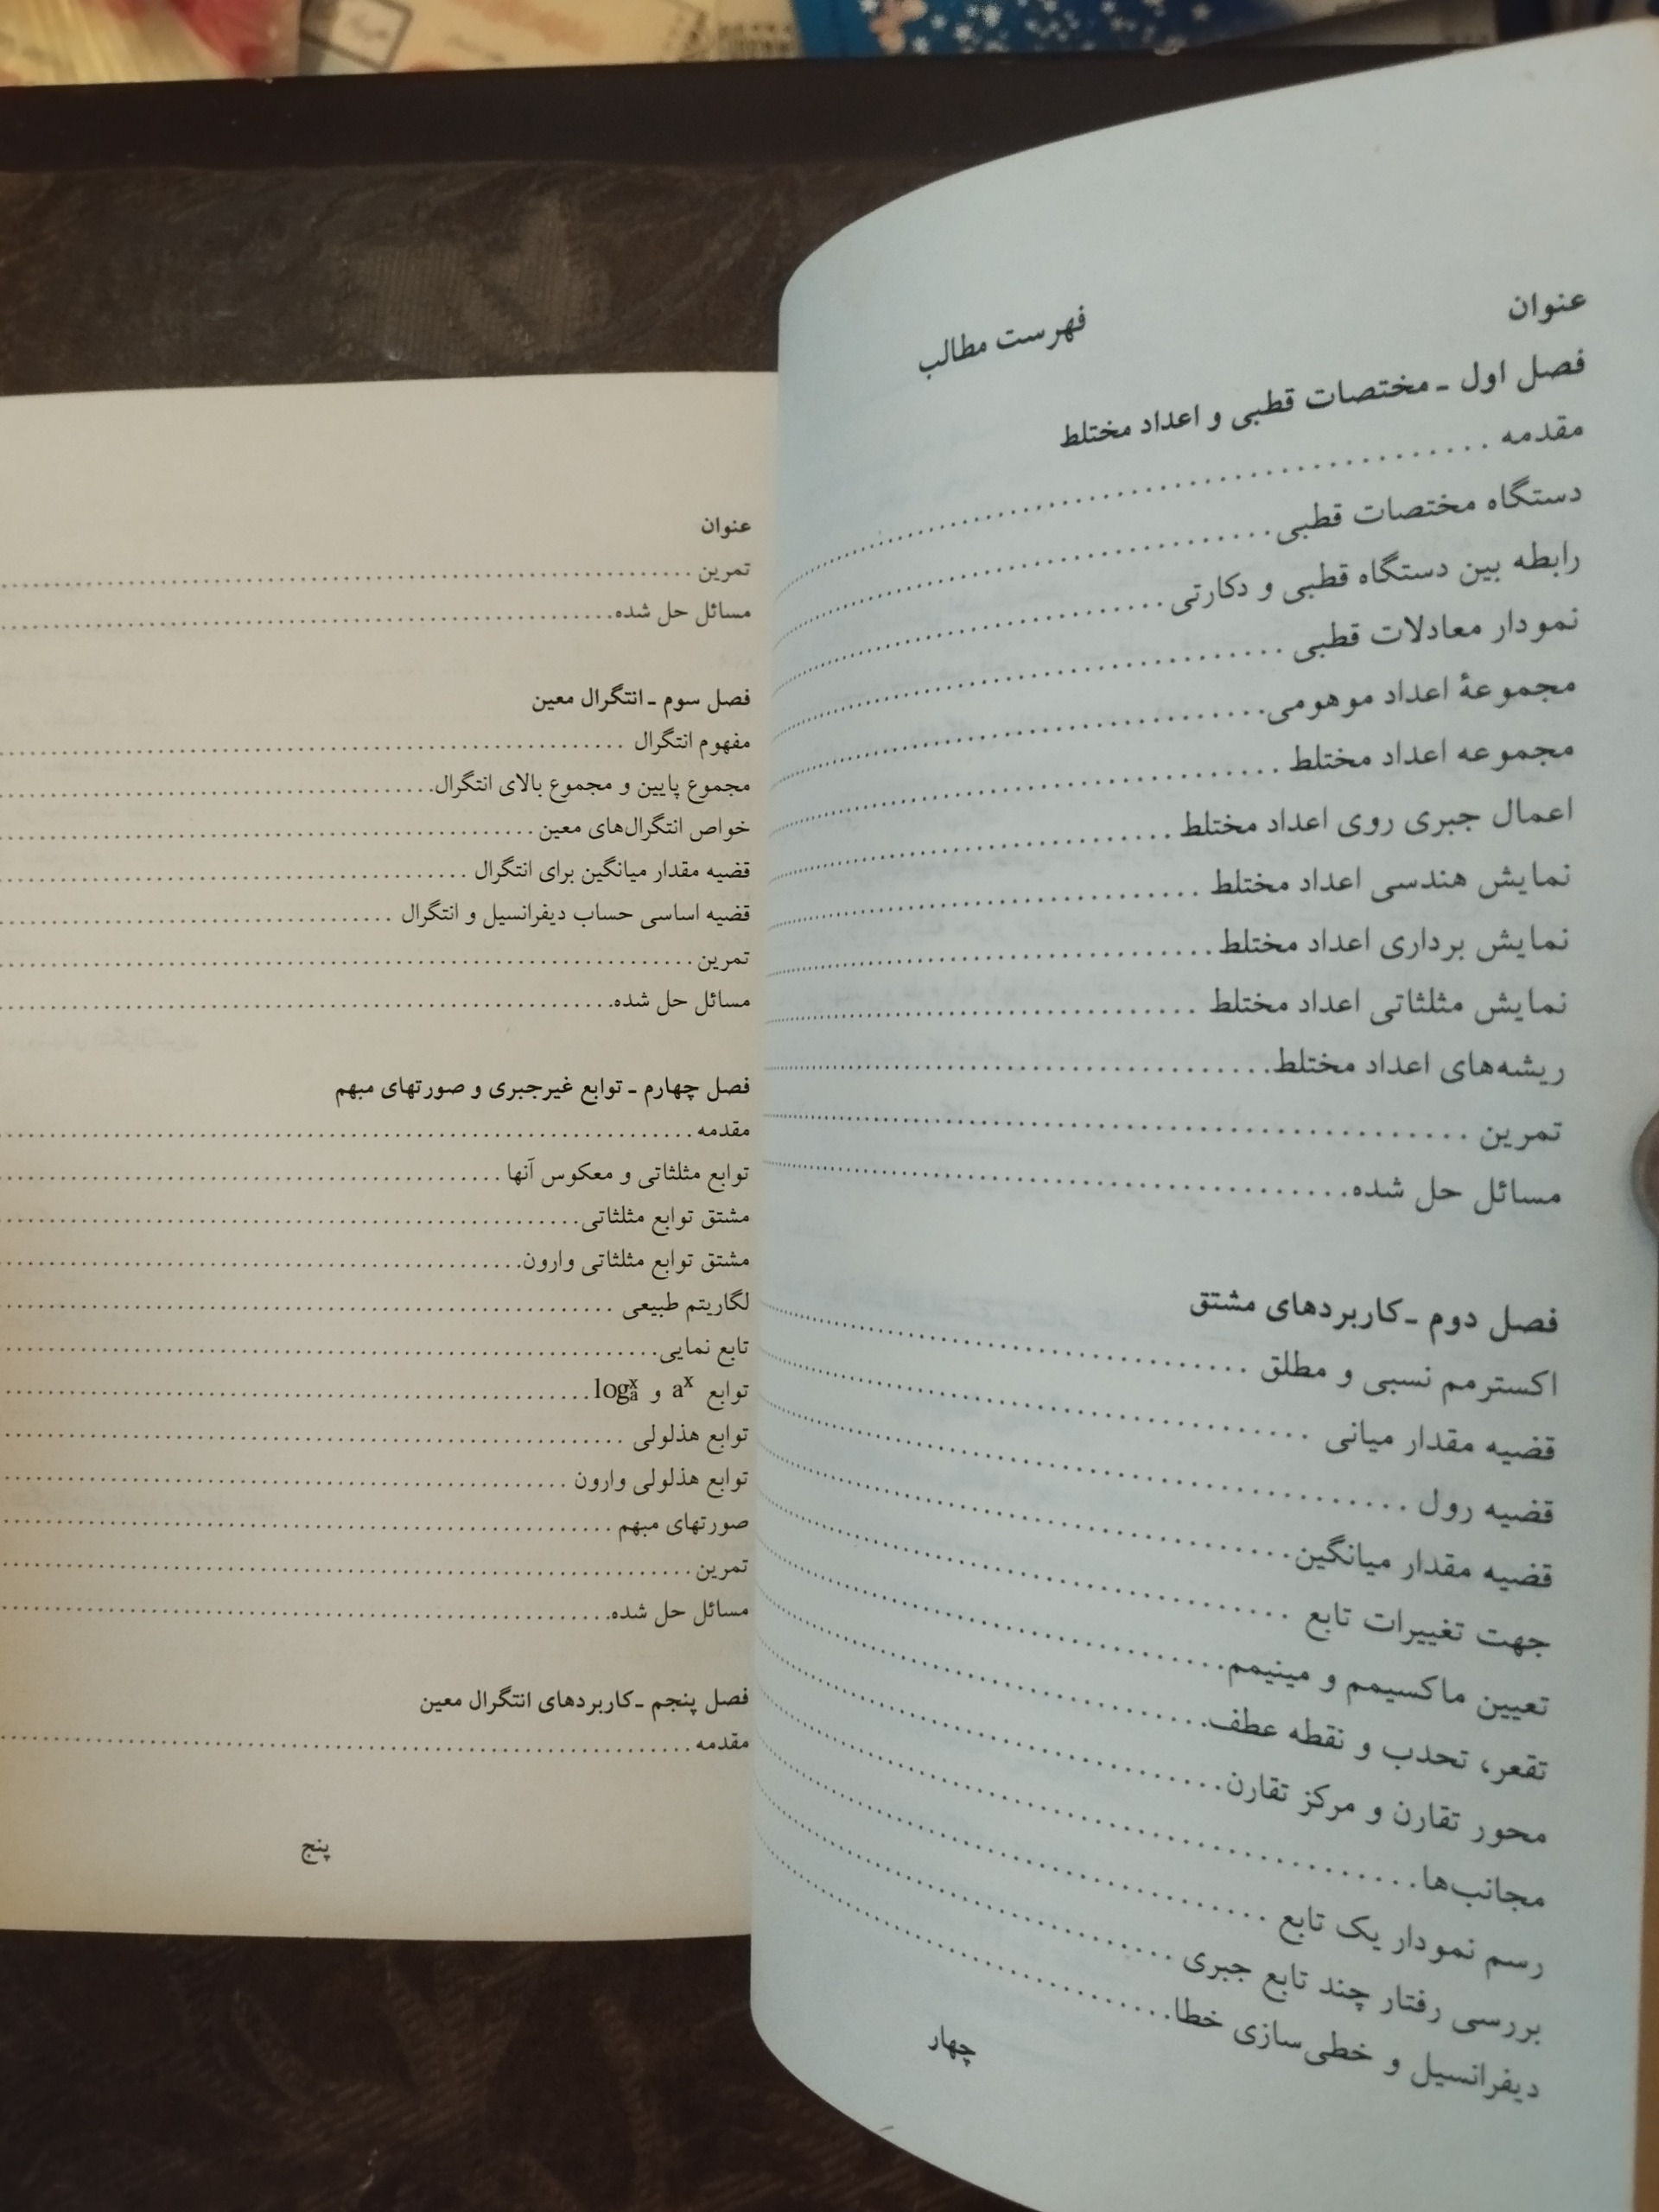 فهرست مطالب
عنوان
فصل اول ـ مختصات قطبی و اعداد مختلط
مقدمه
دستگاه مختصات قطبی
رابطه بین دستگاه قطبی و دکارتی
نمودار معادلات قطبی
مجموعهٔ اعداد موهومی
مجموعه اعداد مختلط
اعمال جبری روی اعداد مختلط
نمایش هندسی اعداد مختلط
نمایش برداری اعداد مختلط
نمایش مثلثاتی اعداد مختلط
ریشه‌های اعداد مختلط
تمرین
مسائل حل شده
فصل دوم ـ کاربردهای مشتق
اکسترمم نسبی و مطلق
قضیه مقدار میانی
قضیه رول
قضیه مقدار میانگین
جهت تغییرات تابع
تعیین ماکسیمم و مینیمم
تقعر، تحدب و نقطه عطف
محور تقارن و مرکز تقارن
مجانب‌ها
رسم نمودار یک تابع
بررسی رفتار چند تابع جبری
دیفرانسیل و خطی‌سازی خطا
چهار
عنوان
تمرین
مسائل حل شده
فصل سوم ـ انتگرال معین
مفهوم انتگرال
مجموع پایین و مجموع بالای انتگرال
خواص انتگرال‌های معین
قضیه مقدار میانگین برای انتگرال
قضیه اساسی حساب دیفرانسیل و انتگرال
تمرین
مسائل حل شده
فصل چهارم ـ توابع غیرجبری و صورتهای مبهم
مقدمه
توابع مثلثاتی و معکوس آنها
مشتق توابع مثلثاتی
مشتق توابع مثلثاتی وارون
لگاریتم طبیعی
تابع نمایی
توابع aˣ و logₐˣ
توابع هذلولی
توابع هذلولی وارون
صورتهای مبهم
تمرین
مسائل حل شده
فصل پنجم ـ کاربردهای انتگرال معین
مقدمه
پنج